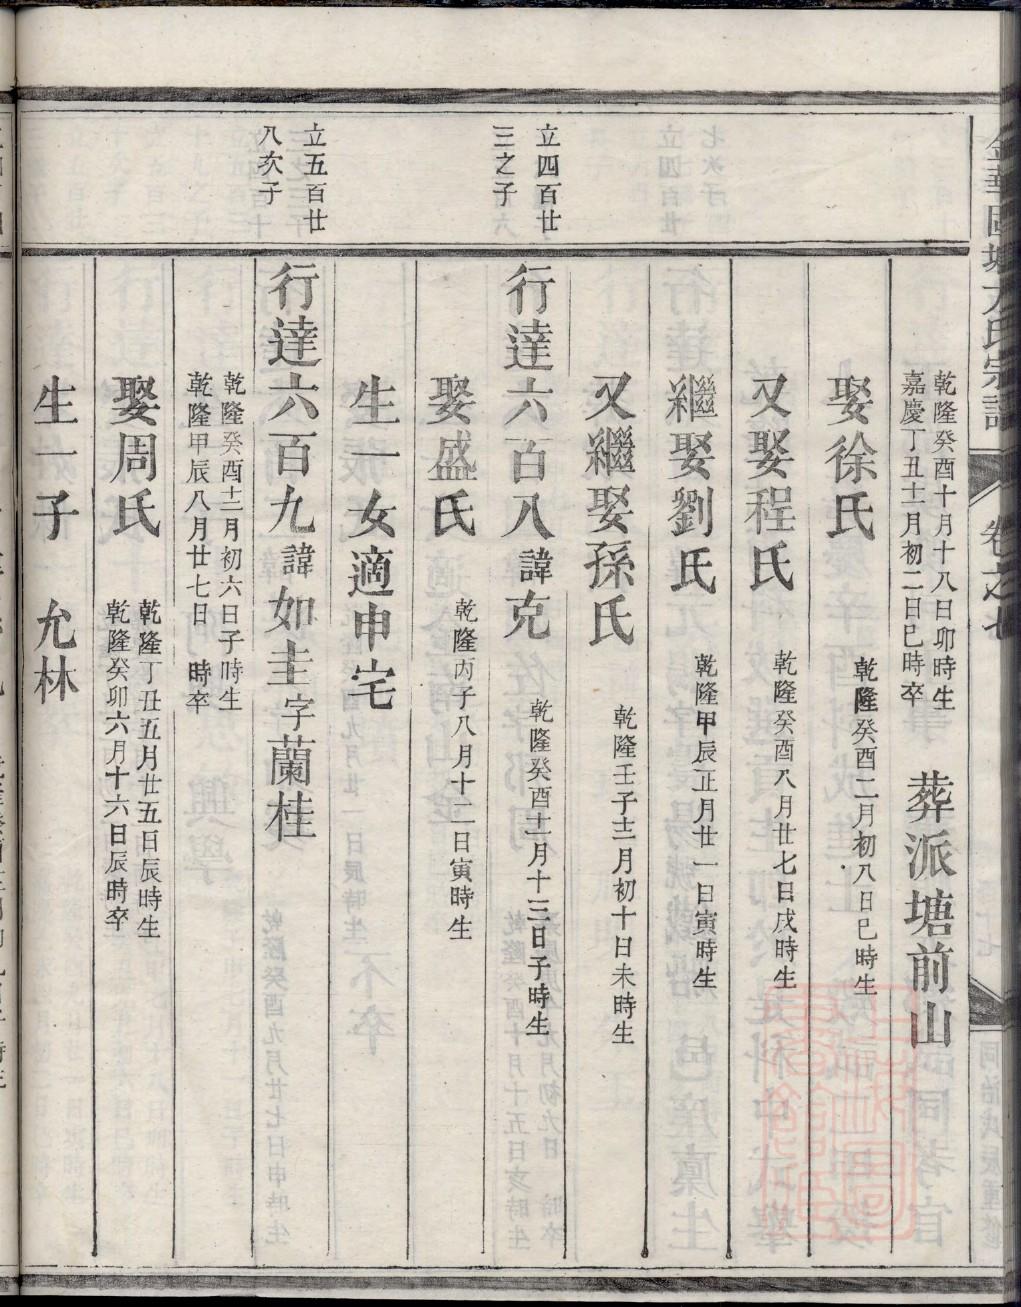 乾隆癸酉十月十八日卯時生
嘉慶丁丑十二月初二日巳時卒
葬派塘前山
娶徐氏
乾隆癸酉二月初八日巳時生
又娶程氏
乾隆癸酉八月廿七日戌時生
繼娶劉氏
乾隆甲辰正月廿一日寅時生
又繼娶孫氏
乾隆壬子十二月初十日未時生
立四百廿
三之子
行達六百八諱克
乾隆癸酉十二月十三日子時生
娶盛氏
乾隆丙子八月十二日寅時生
生一女適申宅
立五百廿
八次子
行達六百九諱如圭字蘭桂
乾隆癸酉十二月初六日子時生
乾隆甲辰八月廿七日 時卒
娶周氏
乾隆丁丑五月廿五日辰時生
乾隆癸卯六月十六日辰時卒
生一子 允林